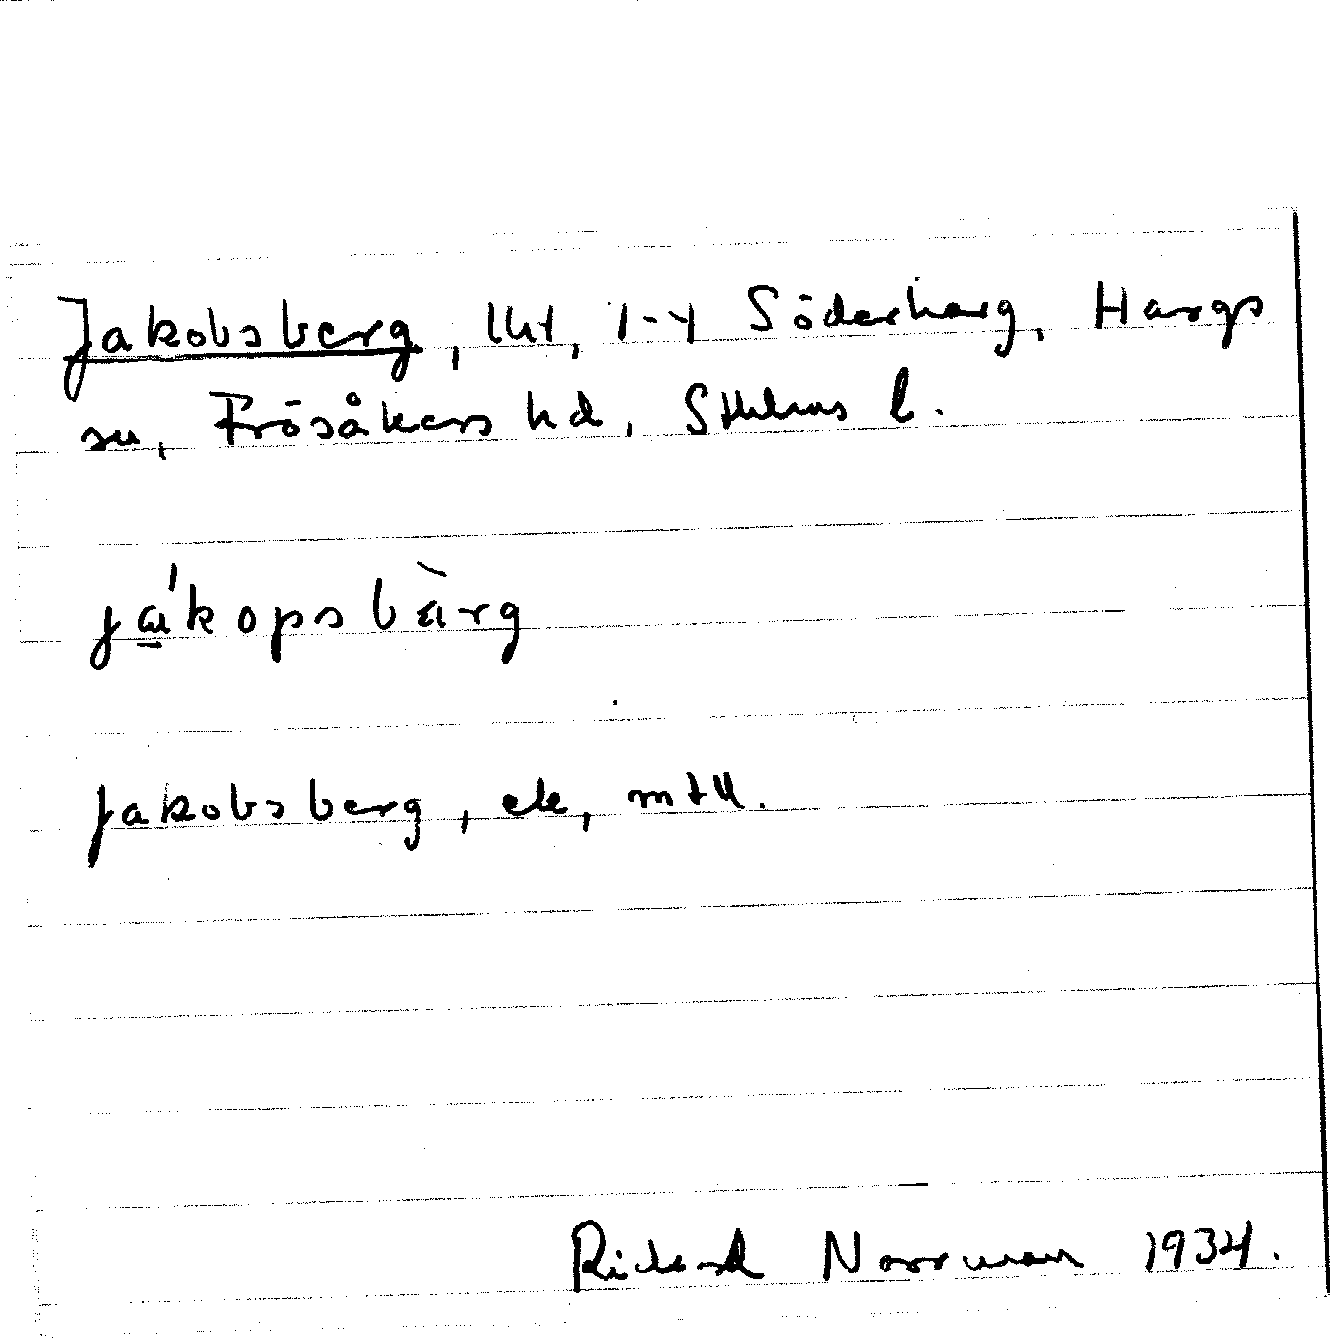 Jakobsberg, lht, 1-4 Söderharg, Hargs
sn, Frösåkers hd, Sthlms l.
ja̱'kopsbàrg
Jakobsberg, ek, mtll.
Rickard Norrman 1934.